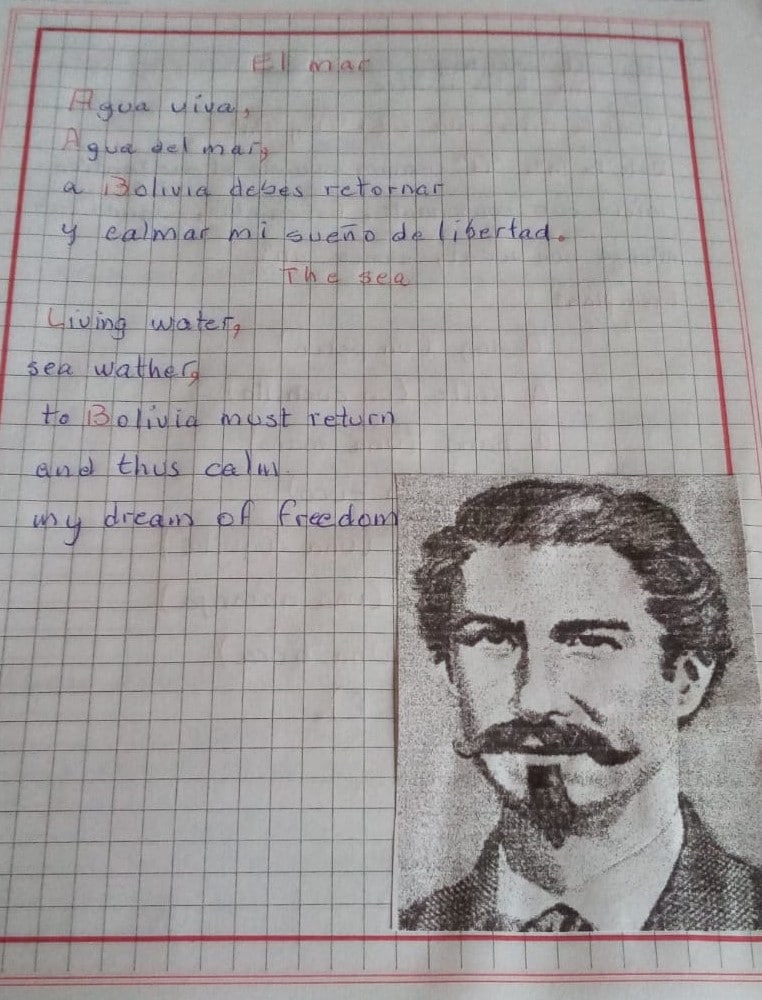 El mar
Agua viva,
Agua del mar,
a Bolivia debes retornar
y calmar mi sueño de libertad.
The sea
Living water,
sea wather,
to Bolivia must return
and thus calm
my dream of freedom